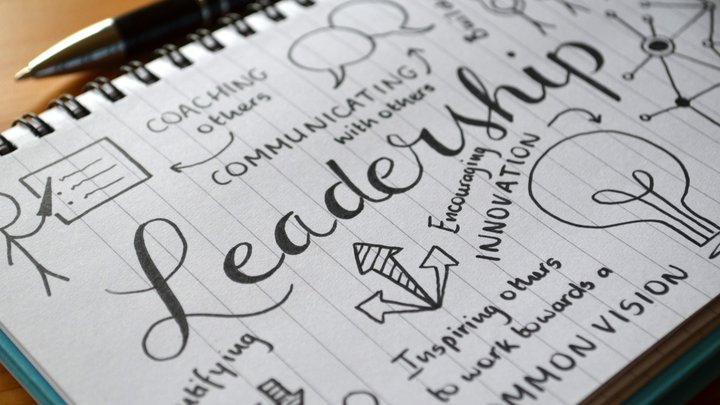 COACHING
others
COMMUNICATING
with others
Leadership
Encouraging
INNOVATION
Inspiring others
to work towards a
VISION